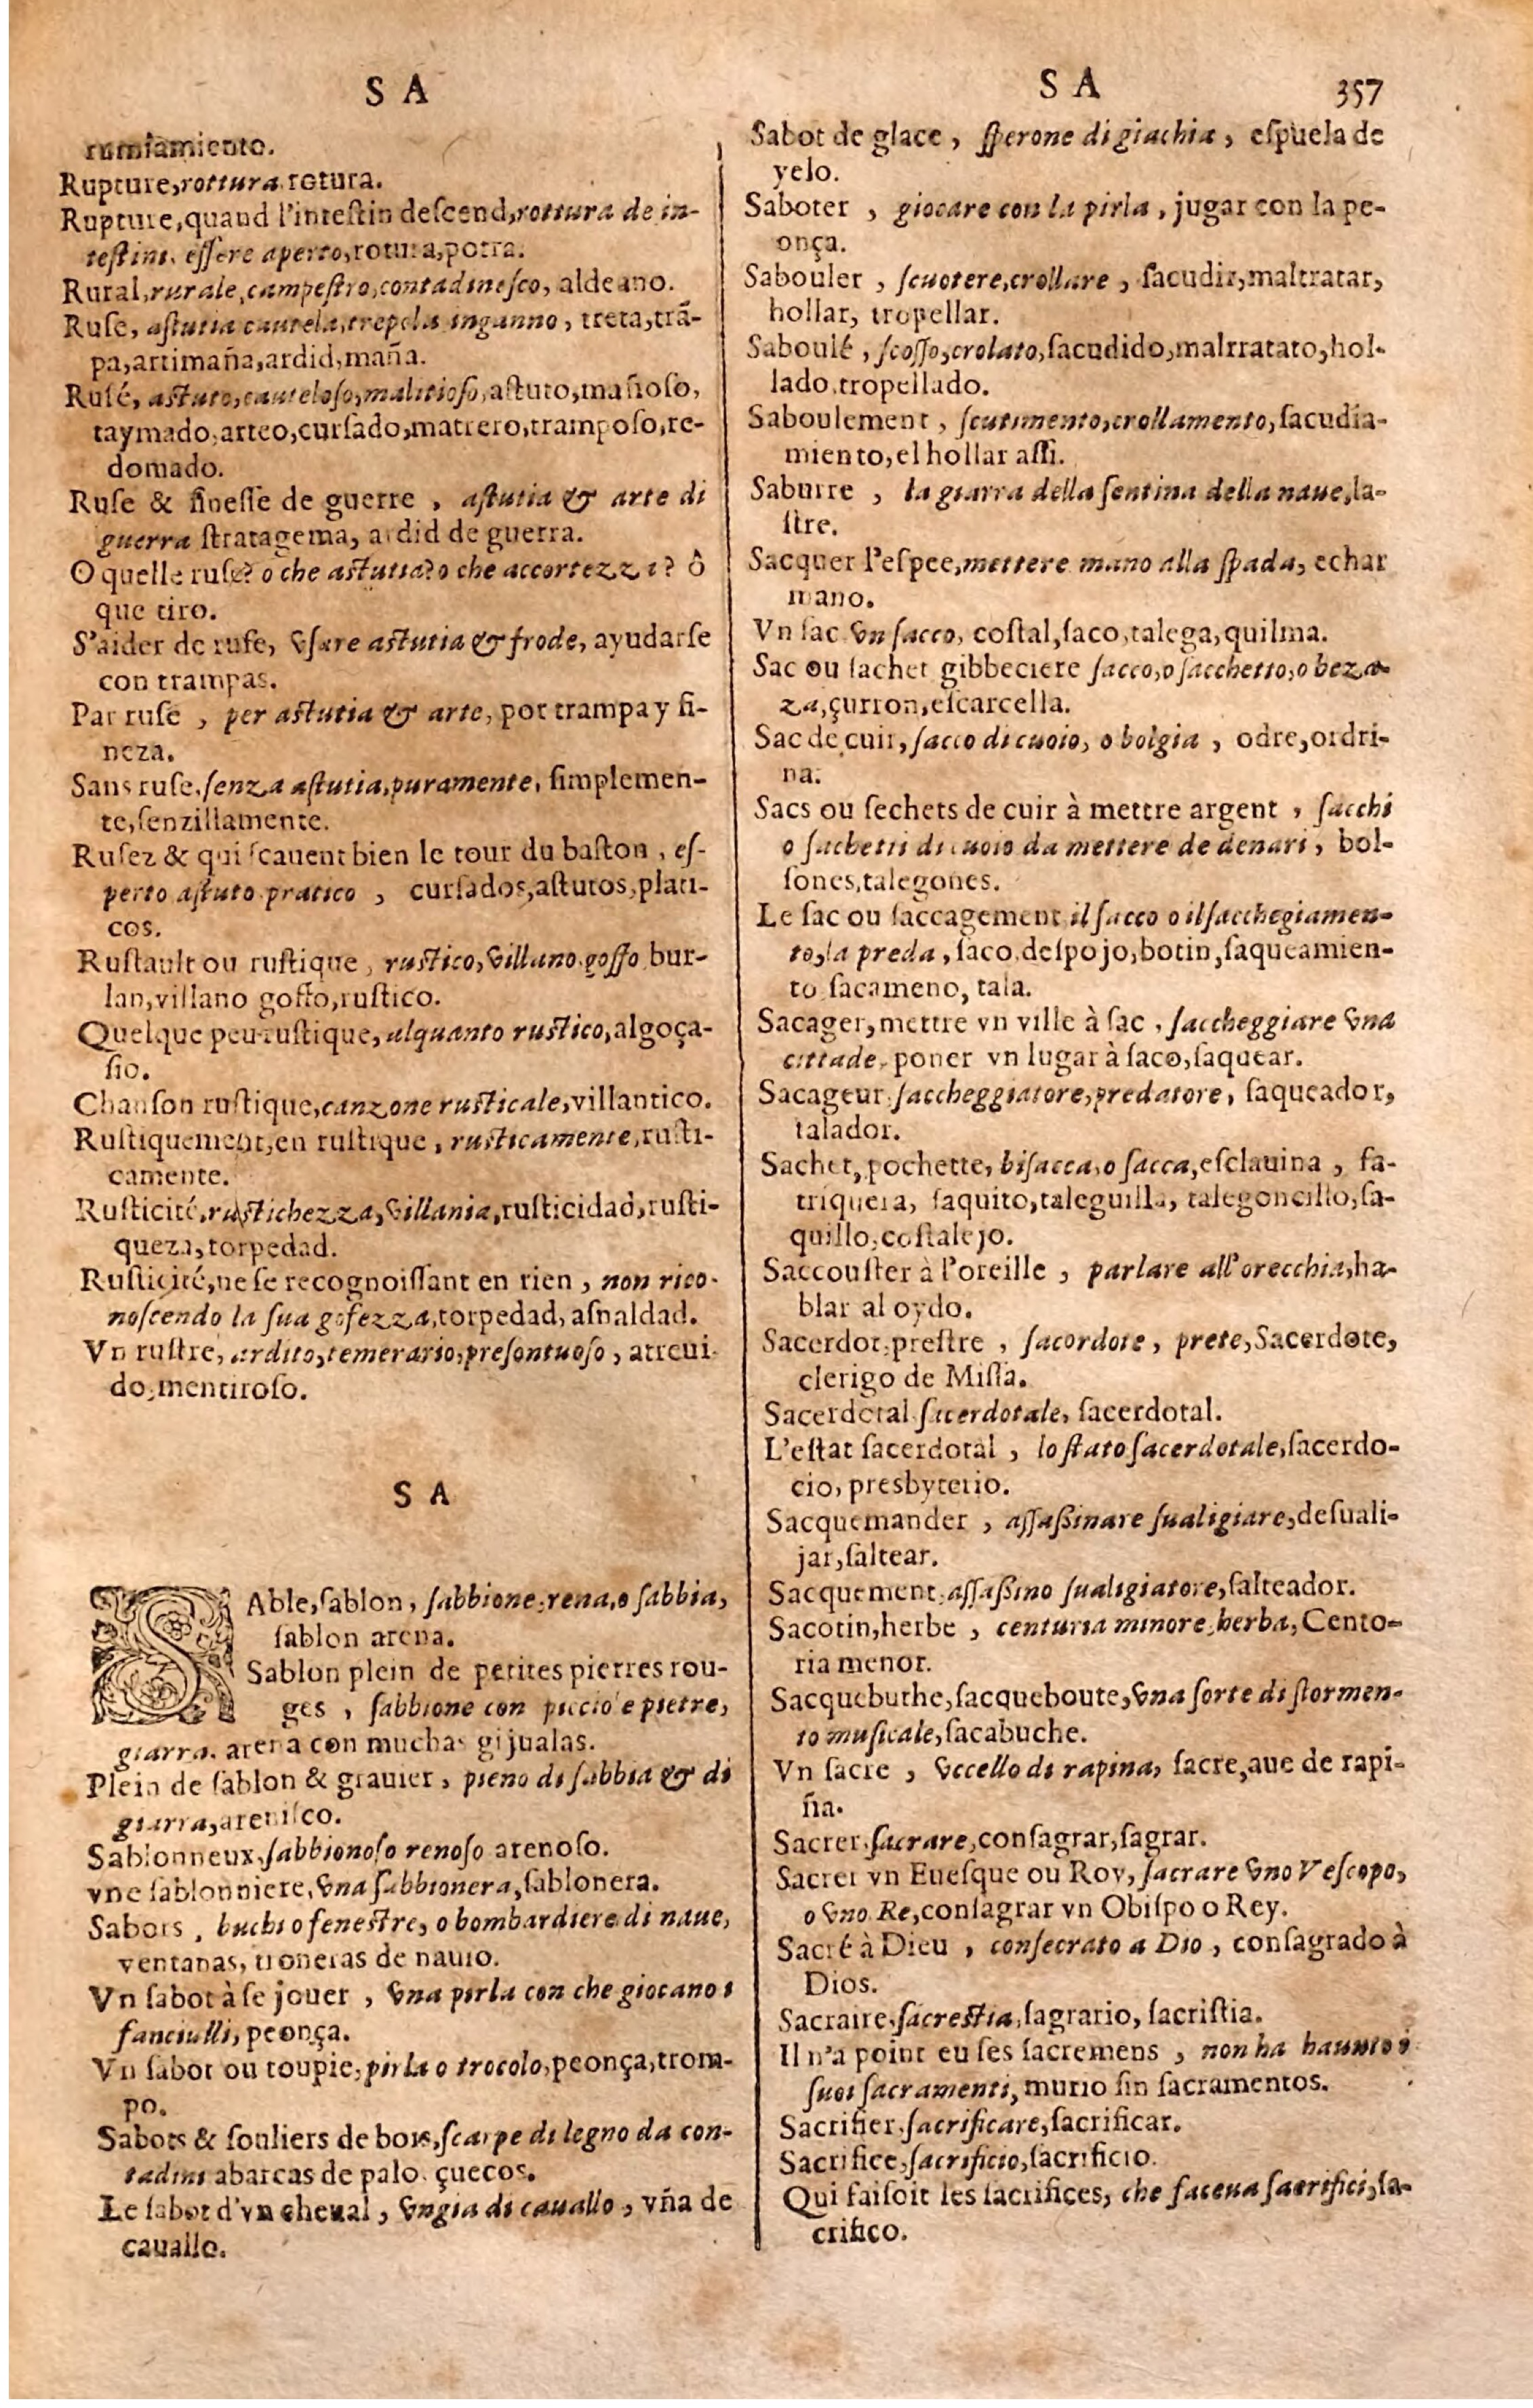 S A
rumiamiento.
Rupture,rottura rotura.
Rupture,quand l'intestin descend,rottura de in-
testini, eſſere aperto,rotura,potra.
Rural,rurale,campeſtro,contadineſco, aldeano.
Ruſe, aſtutia cautela,trepola inganno, treta,trã-
pa,artimaña,ardid,maña.
Ruſé, aſtuto,cauteloſo,malitioſo,aſtuto,mañoſo,
taymado,arteo,curſado,matrero,tramposo,re-
domado.
Ruſe & fineſſe de guerre, aſtutia & arte di
guerra ſtratagema, ardid de guerra.
O quelle ruſe? o che aſtutia? o che accortezza? ô
que tiro.
S'aider de ruſe, vſare aſtutia & frode, ayudarſe
con trampas.
Par ruſe, per aſtutia & arte, por trampa y fi-
neza.
Sans ruſe,ſenza aſtutia,puramente, ſimplemen-
te,ſenzillamente.
Ruſez & qui ſcauent bien le tour du baſton, eſ-
perto aſtuto pratico, curſados,aſtutos,plati-
cos.
Ruſtault ou ruſtique, ruſtico,villano goffo bur-
lan,villano goffo,ruſtico.
Quelque peu ruſtique,alquanto ruſtico,algoça-
fio.
Chanſon ruſtique,canzone ruſticale,villantico.
Ruſtiquement,en ruſtique, ruſticamente,ruſti-
camente.
Ruſticité,ruſtichezza,villania,ruſticidad,ruſti-
queza,torpedad.
Ruſticité,ne ſe recognoiſſant en rien, non rico-
noſcendo la ſua gofezza,torpedad, aſnaldad.
Vn ruſtre, ardito,temerario,preſontuoſo, atreui-
do,mentiroſo.
S A
SAble,ſablon, ſabbione,rena,o ſabbia,
ſablon arena.
Sablon plein de petites pierres rou-
ges, ſabbione con picciole pietre,
giarra. arena con muchas gijualas.
Plein de ſablon & grauier, pieno di ſabbia & di
giarra,areniſco.
Sablonneux,ſabbionoſo renoſo arenoſo.
vne ſablonniere,vna ſabbionera,ſablonera.
Sabots, buchi o feneſtre, o bombardiere di naue,
ventanas, troneras de nauio.
Vn ſabot à ſe jouer, vna pirla con che giocano i
fanciulli, peonça.
Vn ſabot ou toupie,pirla o trocolo,peonça,trom-
po.
Sabots & ſouliers de bois,ſcarpe di legno da con-
tadini abarcas de palo. çuecos.
Le ſabot d'vn cheual, vngia di cauallo, vña de
cauallo.
S A 357
Sabot de glace, ſperone di giachia, eſpuela de
yelo.
Saboter, giocare con la pirla, jugar con la pe-
onça.
Sabouler, ſcuotere,crollare, ſacudir,maltratar,
hollar, tropellar.
Saboulé, ſcoſſo,crolato,ſacudido,malrratato,hol-
lado,tropellado.
Saboulement, ſcutimento,crollamento,ſacudia-
miento,el hollar aſſi.
Saburre, la giarra della ſentina della naue,la-
ſtre.
Sacquer l'eſpee,mettere mano alla ſpada, echar
mano.
Vn ſac vn ſacco, coſtal,ſaco,talega,quilma.
Sac ou ſachet gibbeciere ſacco,o ſacchetto,o beza-
za,çurron,eſcarcella.
Sac de cuir,ſacco di cuoio, o bolgia, odre,ordri-
na.
Sacs ou ſechets de cuir à mettre argent, ſacchi
o ſachetti di cuoio da mettere de denari, bol-
ſones,talegones.
Le ſac ou ſaccagement il ſacco o il ſacchegiamen-
to,la preda, ſaco,deſpojo,botin,ſaqueamien-
to ſacameno, tala.
Sacager,mettre vn ville à ſac, ſaccheggiare vna
cittade, poner vn lugar à ſaco,ſaquear.
Sacageur ſaccheggiatore,predatore, ſaqueador,
talador.
Sachet,pochette, biſacca,o ſacca,eſclauina, fa-
triquera, ſaquito,taleguilla, talegoncillo,ſa-
quillo,coſtalejo.
Saccouſter à l'oreille, parlare all' orecchia,ha-
blar al oydo.
Sacerdot,preſtre, ſacordote, prete,Sacerdote,
clerigo de Miſſa.
Sacerdotal ſacerdotale, ſacerdotal.
L'eſtat ſacerdotal, lo ſtato ſacerdotale,ſacerdo-
cio, presbyterio.
Sacquemander, aſſaßinare ſualigiare,deſuali-
jar,ſaltear.
Sacquement,aſſaßino ſualigiatore,ſalteador.
Sacotin,herbe, centuria minore,herba,Cento-
ria menor.
Sacquebuthe,ſacqueboute,vna ſorte di ſtormen-
to muſicale,ſacabuche.
Vn ſacre, vccello di rapina, ſacre,aue de rapi-
ña.
Sacrer,ſacrare,conſagrar,ſagrar.
Sacrer vn Eueſque ou Roy,ſacrare vno Veſcopo,
o vno Re,conſagrar vn Obiſpo o Rey.
Sacré à Dieu, conſecrato a Dio, conſagrado à
Dios.
Sacraire,ſacreſtia,ſagrario, ſacriſtia.
Il n'a point eu ſes ſacremens, non ha hauuto i
ſuoi ſacramenti, murio ſin ſacramentos.
Sacrifier,ſacrificare,ſacrificar.
Sacrifice,ſacrificio,ſacrificio.
Qui faiſoit les ſacrifices, che faceua ſacrifici,ſa-
crifico.